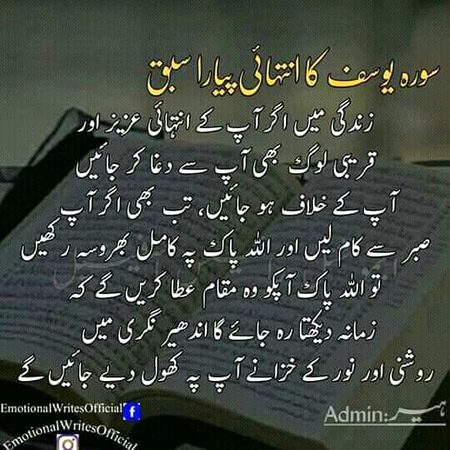 سورہ یوسف کا انتہائی پیارا سبق
زندگی میں اگر آپ کے انتہائی عزیز اور
قریبی لوگ بھی آپ سے دغا کر جائیں
آپ کے خلاف ہو جائیں، تب بھی اگر آپ
صبر سے کام لیں اور اللہ پاک پہ کامل بھروسہ رکھیں
تو اللہ پاک آپکو وہ مقام عطا کریں گے کہ
زمانہ دیکھتا رہ جائے گا اندھیر نگری میں
روشنی اور نور کے خزانے آپ پہ کھول دیے جائیں گے
EmotionalWritesOfficial
Admin: ہیر
EmotionalWritesOfficial